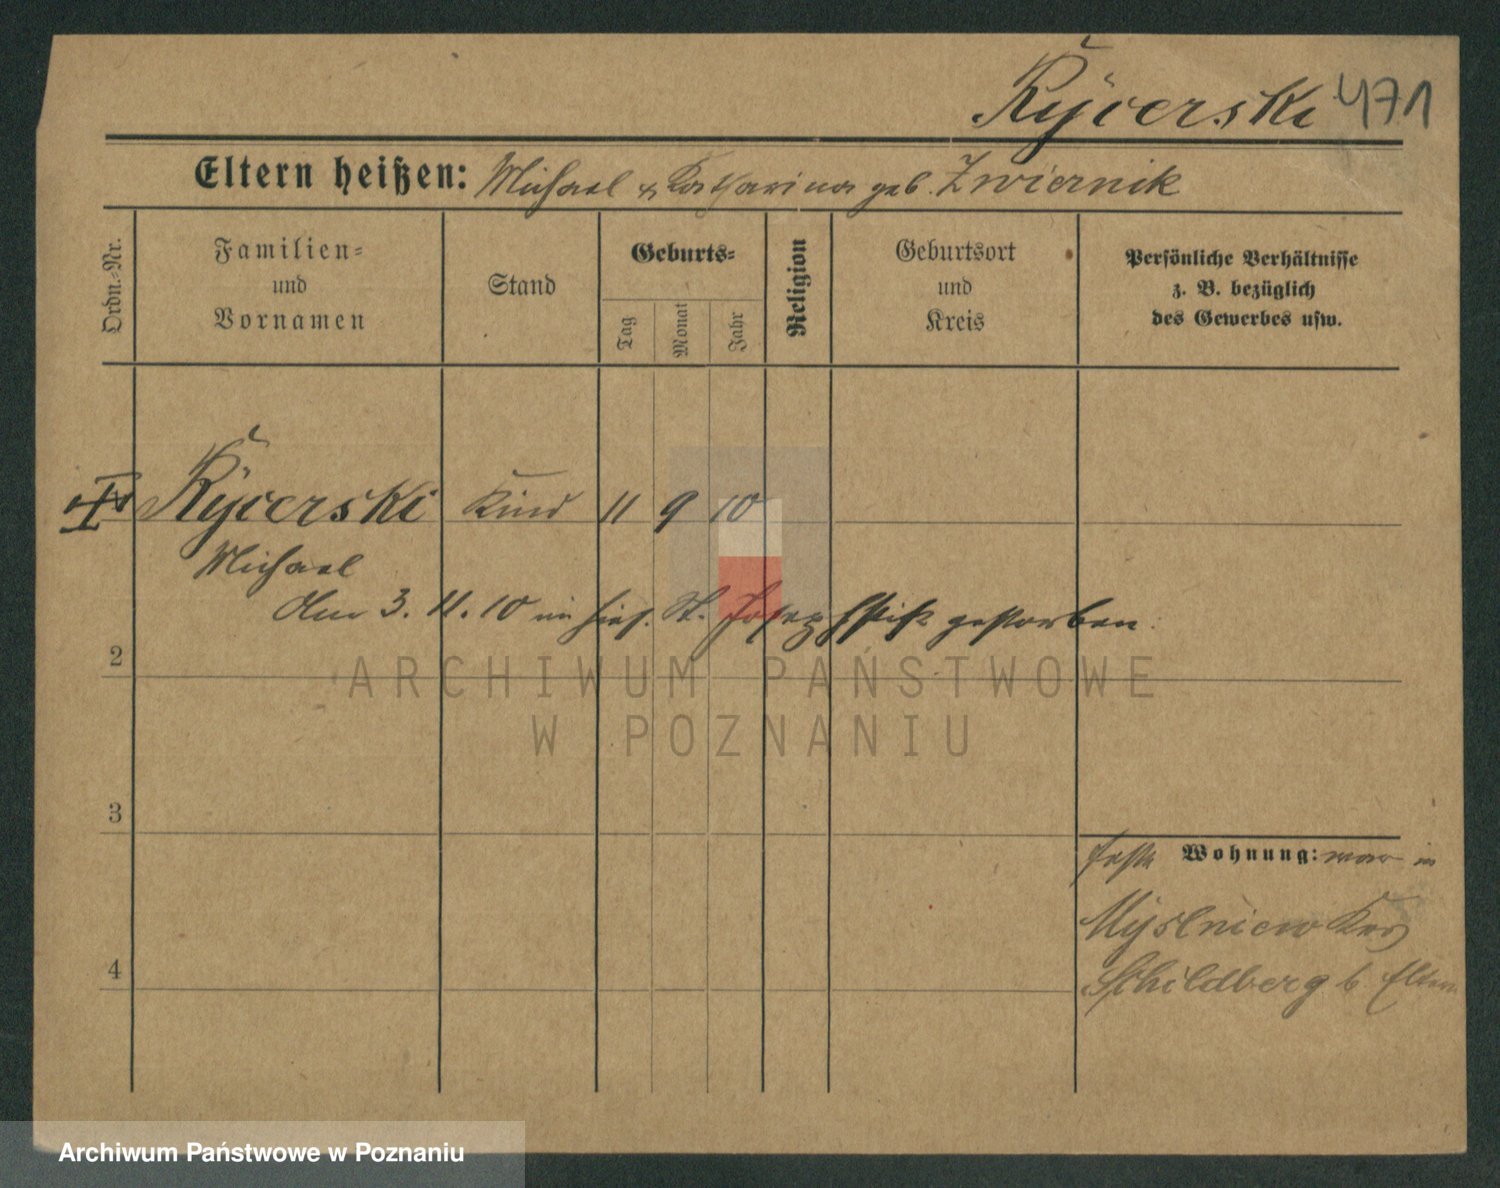 Rycerski 471
Eltern heißen: Michael & Katharina geb. Zwiernik
Ordn.-Nr.
Familien-
und
Vornamen
Stand
Geburts-
Tag
Monat
Jahr
Religion
Geburtsort
und
Kreis
Persönliche Verhältnisse
z. B. bezüglich
des Gewerbes usw.
Rycerski Kind 11 9 10
Michael
Am 3. 11. 10 im hies. St. Josephstift gestorben.
2
ARCHIWUM PAŃSTWOWE
W POZNANIU
3
feste Wohnung: war in
Myslniew Krs
4
Schildberg b Eltern
Archiwum Państwowe w Poznaniu